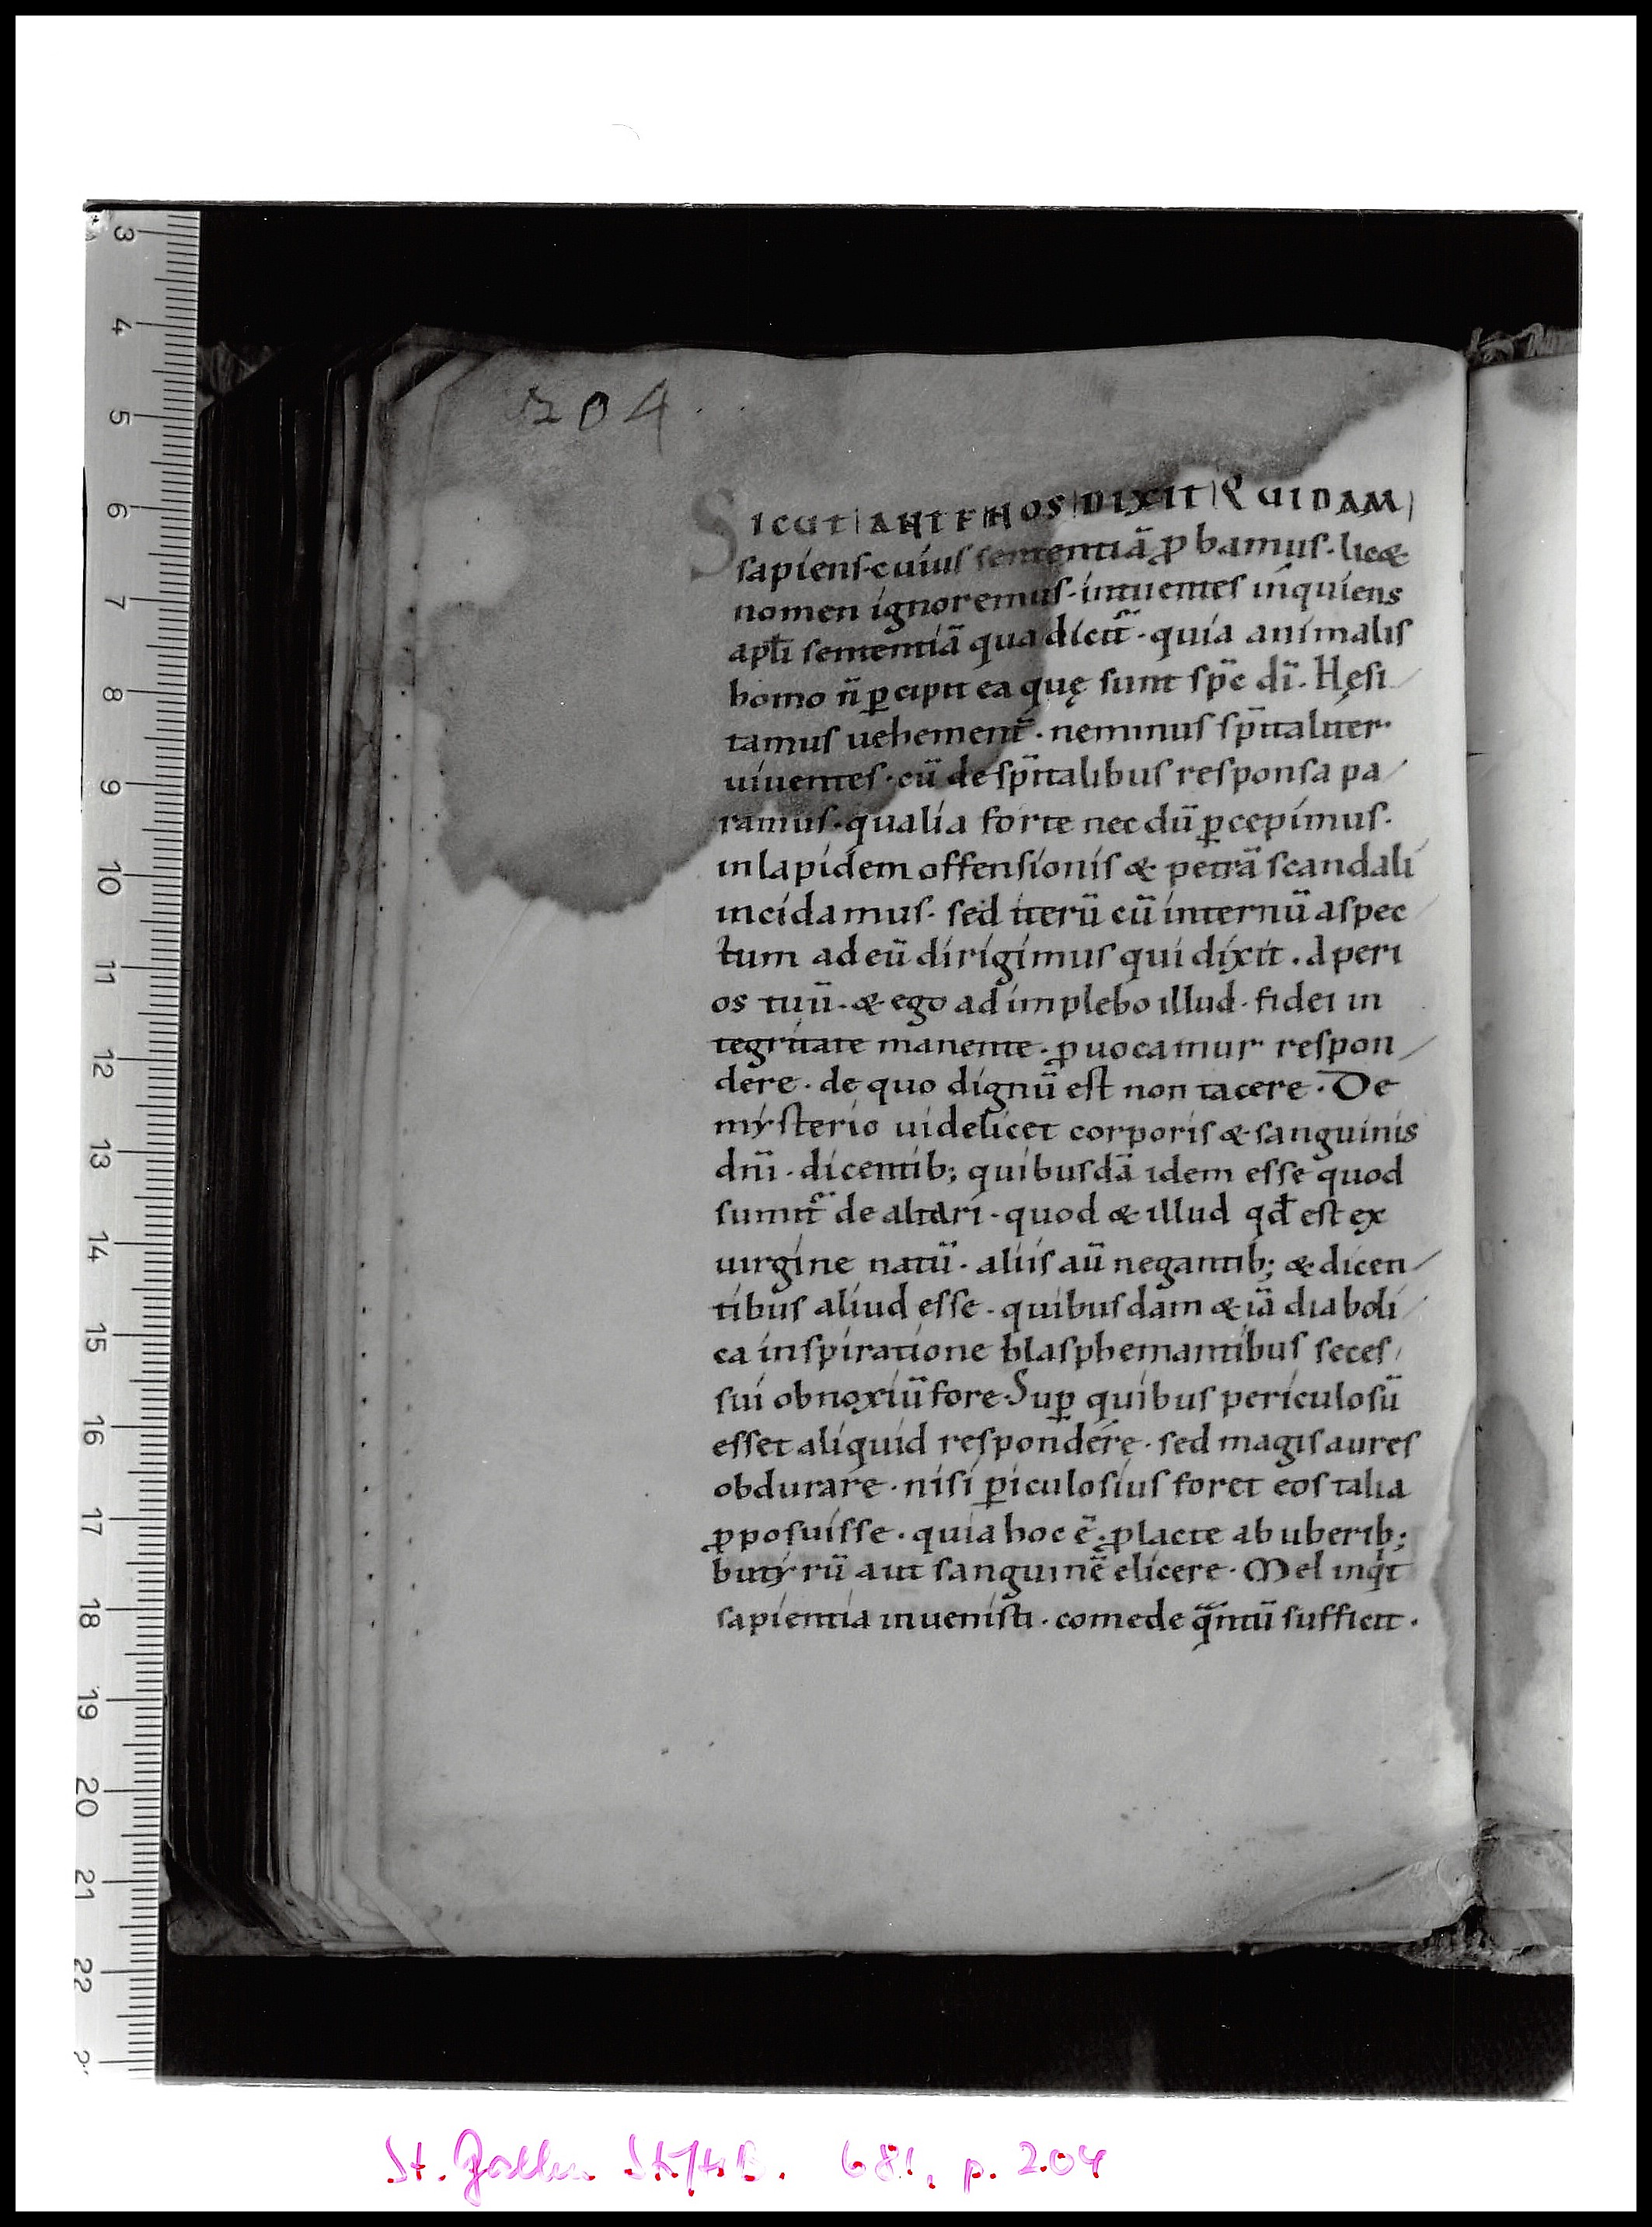 3
4
5
6
7
8
9
10
11
12
13
14
15
16
17
18
19
20
21
22
204
SICUT ANTE NOS DIXIT QUIDAM
sapiens·cuius sententiā ꝓbamus·licæ
nomen ignoremus·intuentes inquiens
apłi sententiā qua dicit᷑·quia animalis
homo n̄ ꝑcipit ea quę sunt sp̄c dī. Hęsi
tamus uehement᷑·neminus sp̄italiter
uiuentes·cū de sp̄italibus responsa pa
ramus·qualia forte necdū ꝑcepimus·
in lapidem offensionis & petrā scandali
incidamus· sed iterū cū internū aspec
tum ad eū dirigimus qui dixit. Aperi
os tuū·& ego adimplebo illud·fidei in
tegritate manente·ꝓuocamur respon
dere·de quo dignū est non tacere·De
mysterio uidelicet corporis & sanguinis
dn̄i·dicentib; quibusdā idem esse quod
sumit᷑ de altari·quod & illud qđ est ex
uirgine natū·aliis aū negantib; & dicen
tibus aliud esse·quibusdam & iā diaboli
ca inspiratione blasphemantibus seces
sui obnoxiū fore·Suꝑ quibus periculosū
esset aliquid respondere·sed magis aures
obdurare·nisi ꝑiculosius foret eos talia
ꝓposuisse·quia hoc ē·ꝓ lacte ab uberib;
butyrū aut sanguinē elicere·Mel inqͥt
sapientia inuenisti·comede qͣntū sufficit·
St. Gallen StiftsB. 681, p. 204